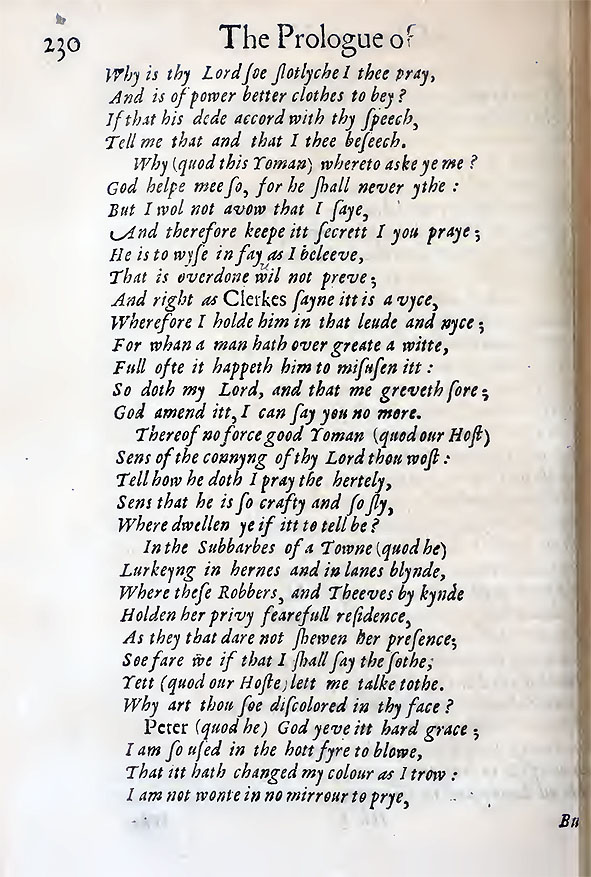 230 The Prologue of
Why is thy Lord ſoe ſlotlyche I thee pray,
And is of power better clothes to bey ?
If that his dede accord with thy ſpeech,
Tell me that and that I thee beſeech.
Why (quod this Yoman) whereto aske ye me ?
God helpe mee ſo, for he ſhall never ythe :
But I wol not avow that I ſaye,
And therefore keepe itt ſecrett I you praye ;
He is to wyſe in fay as I beleeve,
That is overdone wil not preve ;
And right as Clerkes ſayne itt is a vyce,
Wherefore I holde him in that leude and nyce ;
For whan a man hath over greate a witte,
Full ofte it happeth him to miſuſen itt :
So doth my Lord, and that me greveth ſore ;
God amend itt, I can ſay you no more.
Thereof no force good Yoman (quod our Hoſt)
Sens of the connyng of thy Lord thou woſt :
Tell how he doth I pray the hertely,
Sens that he is ſo crafty and ſo ſly,
Where dwellen ye if itt to tell be ?
In the Subbarbes of a Towne (quod he)
Lurkeyng in hernes and in lanes blynde,
Where theſe Robbers, and Theeves by kynde
Holden her privy fearefull reſidence,
As they that dare not ſhewen her preſence ;
Soe fare we if that I ſhall ſay the ſothe ;
Yett (quod our Hoſte) lett me talke to the.
Why art thou ſoe diſcolored in thy face ?
Peter (quod he) God yeve itt hard grace ;
I am ſo uſed in the hott fyre to blowe,
That itt hath changed my colour as I trow :
I am not wonte in no mirrour to prye,
Bu